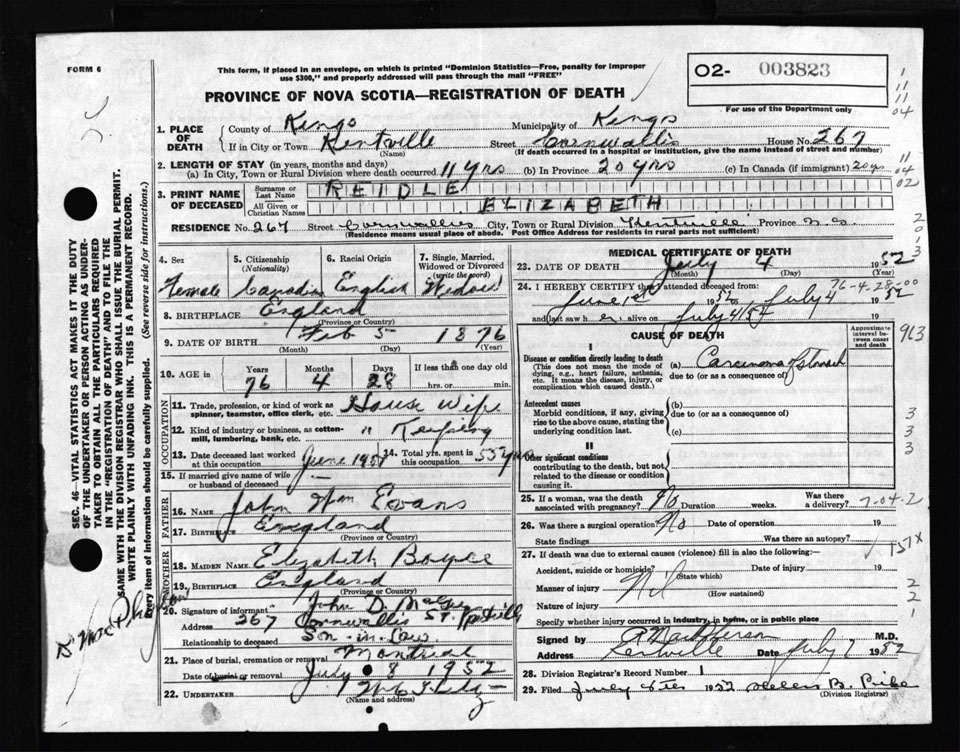 FORM 6
This form, if placed in an envelope, on which is printed "Dominion Statistics—Free, penalty for improper
use $300," and properly addressed will pass through the mail "FREE"
O2- 003823
For use of the Department only
PROVINCE OF NOVA SCOTIA—REGISTRATION OF DEATH
1. PLACE OF DEATH
County of Kings Municipality of Kings
If in City or Town Kentville Street Cornwallis House No. 267
(Name) (If death occurred in a hospital or institution, give the name instead of street and number)
2. LENGTH OF STAY (in years, months and days)
(a) In City, Town or Rural Division where death occurred 11 yrs (b) In Province 20 yrs (c) In Canada (if immigrant) 20 yrs
3. PRINT NAME OF DECEASED
Surname or Last Name REIDLE
All Given or Christian Names ELIZABETH
RESIDENCE No. 267 Street Cornwallis City, Town or Rural Division Kentville Province N.S.
(Residence means usual place of abode. Post Office Address for residents in rural parts not sufficient)
4. Sex
Female
5. Citizenship
(Nationality)
Canadian
6. Racial Origin
English
7. Single, Married,
Widowed or Divorced
(write the word)
Widow
8. BIRTHPLACE England
(Province or Country)
9. DATE OF BIRTH Feb 5 1876
(Month) (Day) (Year)
10. AGE in Years Months Days If less than one day old
76 4 28 hrs. or min.
OCCUPATION
11. Trade, profession, or kind of work as
spinner, teamster, office clerk, etc. House Wife
12. Kind of industry or business, as cotton-
mill, lumbering, bank, etc. " Keeping
13. Date deceased last worked
at this occupation June 1951
14. Total yrs. spent in
this occupation 55 yrs
15. If married give name of wife
or husband of deceased
FATHER
16. NAME John Wm Evans
17. BIRTHPLACE England
(Province or Country)
MOTHER
18. MAIDEN NAME Elizabeth Boyce
19. BIRTHPLACE England
(Province or Country)
20. Signature of informant John D.
Address 267 Cornwallis St. Kentville
Relationship to deceased Son-in-Law
21. Place of burial, cremation or removal Montreal
Date of burial or removal July 8 1952
22. UNDERTAKER
(Name and address)
MEDICAL CERTIFICATE OF DEATH
23. DATE OF DEATH July 4 1952
(Month) (Day) (Year)
24. I HEREBY CERTIFY that I attended deceased from:
June 1st 1952 to July 4 1952
and last saw her alive on July 4/52
76-4-28-00
CAUSE OF DEATH
Approximate
interval be-
tween onset
and death
I
Disease or condition directly leading to death
(This does not mean the mode of
dying, e.g., heart failure, asthenia,
etc. It means the disease, injury, or
complication which caused death.)
(a) Carcinoma of Stomach
due to (or as a consequence of)
Antecedent causes
Morbid conditions, if any, giving
rise to the above cause, stating the
underlying condition last.
(b)
due to (or as a consequence of)
(c)
II
Other significant conditions
contributing to the death, but not
related to the disease or condition
causing it.
25. If a woman, was the death
associated with pregnancy? No Duration weeks. Was there
a delivery?
7-04-2
26. Was there a surgical operation? No Date of operation 19
State findings Was there an autopsy?
151X
27. If death was due to external causes (violence) fill in also the following:—
Accident, suicide or homicide? Date of injury 19
(State which)
Manner of injury Nil
(How sustained)
Nature of injury
Specify whether injury occurred in industry, in home, or in public place
Signed by MacPherson M.D.
Address Kentville Date July 7 1952
28. Division Registrar's Record Number 1
29. Filed 1952 Helen B. Pike
(Division Registrar)
SEC. 46—VITAL STATISTICS ACT MAKES IT THE DUTY
OF THE UNDERTAKER OR PERSON ACTING AS UNDER-
TAKER TO OBTAIN ALL THE PARTICULARS REQUIRED
IN THE "REGISTRATION OF DEATH" AND TO FILE THE
SAME WITH THE DIVISION REGISTRAR WHO SHALL ISSUE THE BURIAL PERMIT.
WRITE PLAINLY WITH UNFADING INK. THIS IS A PERMANENT RECORD.
Every item of information should be carefully supplied. (See reverse side for instructions.)
1
11
11
04
11
04
02
2
0
1
3
913
3
3
3
2
2
1